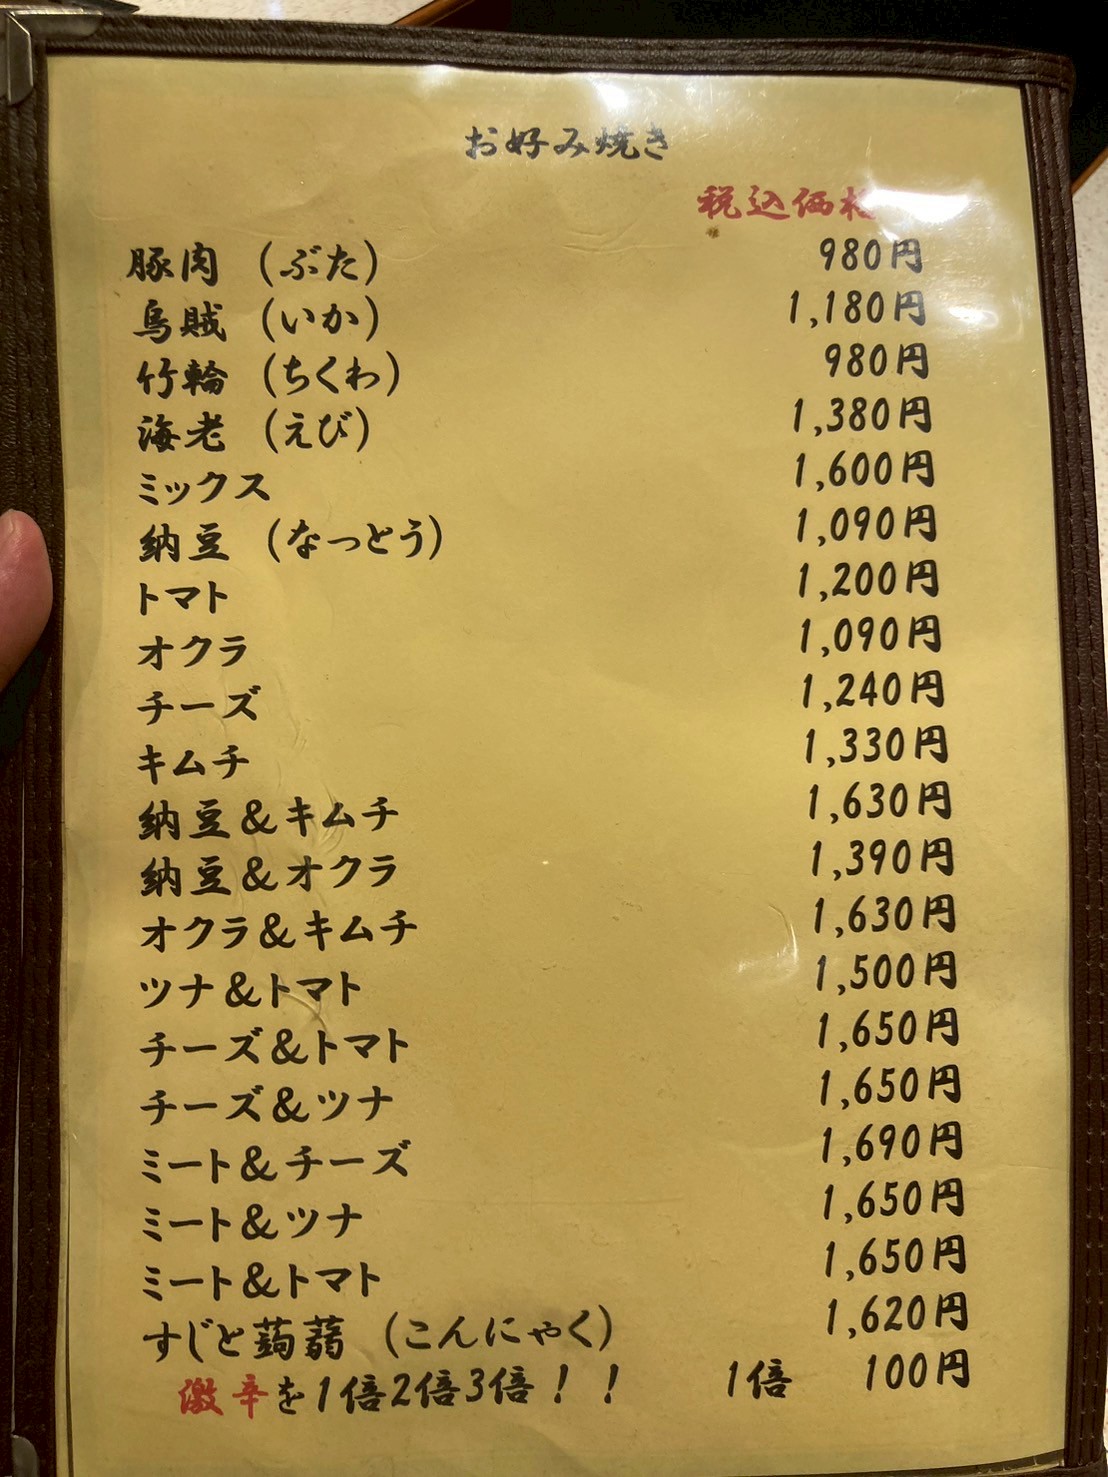 お好み焼き
税込価格
豚肉 (ぶた) 980円
烏賊 (いか) 1,180円
竹輪 (ちくわ) 980円
海老 (えび) 1,380円
ミックス 1,600円
納豆 (なっとう) 1,090円
トマト 1,200円
オクラ 1,090円
チーズ 1,240円
キムチ 1,330円
納豆&キムチ 1,630円
納豆&オクラ 1,390円
オクラ&キムチ 1,630円
ツナ&トマト 1,500円
チーズ&トマト 1,650円
チーズ&ツナ 1,650円
ミート&チーズ 1,690円
ミート&ツナ 1,650円
ミート&トマト 1,650円
すじと蒟蒻 (こんにゃく) 1,620円
激辛を1倍2倍3倍!! 1倍 100円